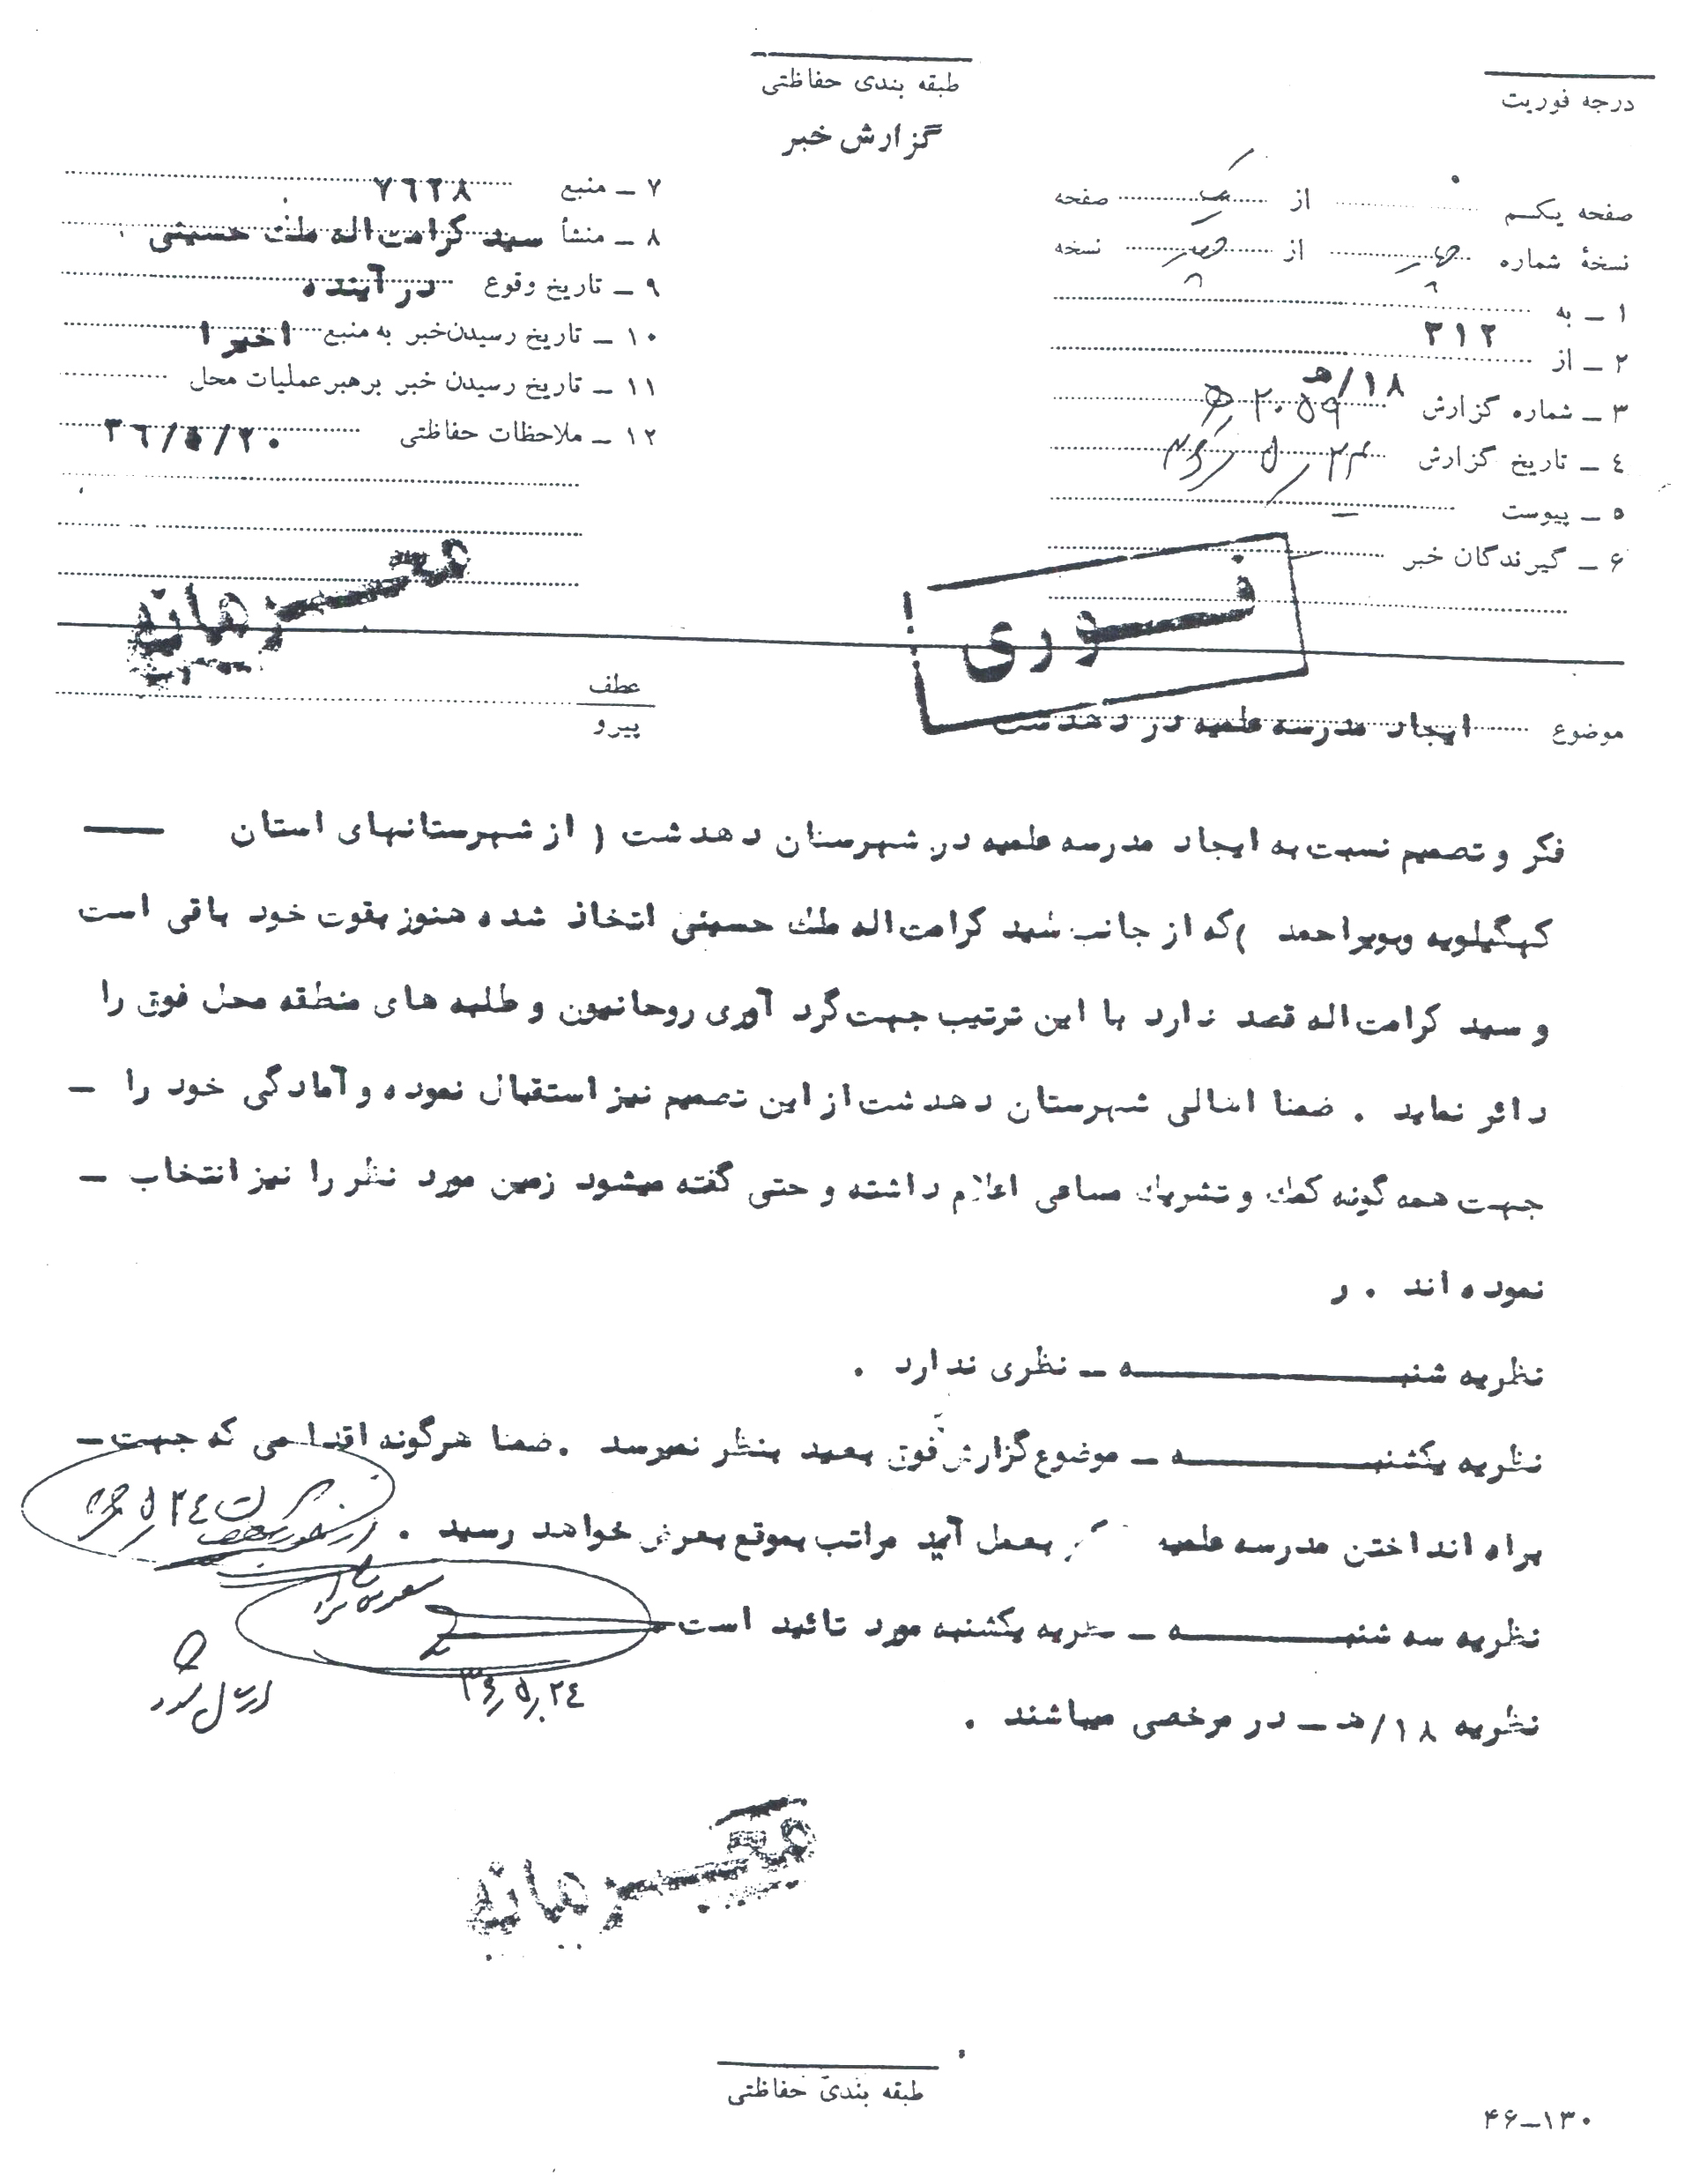 طبقه بندی حفاظتی
درجه فوریت
گزارش خبر
صفحه یکم از یک صفحه
نسخهٔ شماره از نسخه
۱ – به ۳۱۲
۲ – از ۱۸/هـ
۳ – شماره گزارش ۲۰۵۹ هـ
۴ – تاریخ گزارش
۵ – پیوست –
۶ – گیرندگان خبر
۷ – منبع ۷۶۲۸
۸ – منشأ سید کرامت اله ملک حسینی
۹ – تاریخ وقوع در آینده
۱۰ – تاریخ رسیدن خبر به منبع اخیرا
۱۱ – تاریخ رسیدن خبر برهبر عملیات محل
۱۲ – ملاحظات حفاظتی ۳۶/۵/۲۰
محرمانه
فوری
عطف
پیرو
موضوع ایجاد مدرسه علمیه در دهدشت
فکر و تصمیم نسبت به ایجاد مدرسه علمیه در شهرستان دهدشت ( از شهرستانهای استان —
کهگیلویه وبویراحمد )که از جانب سید کرامت اله ملک حسینی اتخاذ شده هنوز بقوت خود باقی است
و سید کرامت اله قصد دارد با این ترتیب جهت گرد آوری روحانیون و طلبه های منطقه محل فوق را
دائر نماید . ضمنا اهالی شهرستان دهدشت از این تصمیم نیز استقبال نموده و آمادگی خود را –
جهت همه گونه کمک و تشریک مساعی اعلام داشته و حتی گفته میشود زمین مورد نظر را نیز انتخاب –
نموده اند . ر
نظریه شنبـــه – نظری ندارد .
نظریه یکشنبـــه – موضوع گزارش فوق بعید بنظر نمیرسد .ضمنا هرگونه اقدامی که جهت –
براه انداختن مدرسه علمیه بعمل آید مراتب بموقع بعرض خواهد رسید .
نظریه سه شنبـــه – نظریه یکشنبه مورد تائید است
۳۶/۵/۲۴
نظریه ۱۸/هـ – در مرخصی میباشند .
محرمانه
طبقه بندی حفاظتی
۴۶–۱۳۰